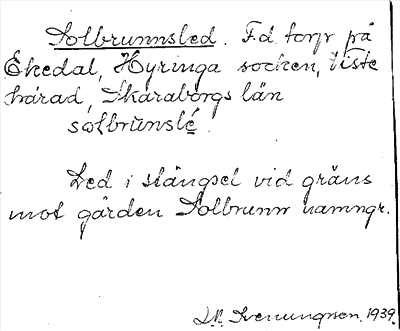 Solbrunnsled. F.d. torp på
Ekedal, Hyringa socken, Viste
härad, Skaraborgs län
solbrùnslé.
Led i stängsel vid gräns
mot gården Solbrunn namngr.
Iveningsen. 1939.